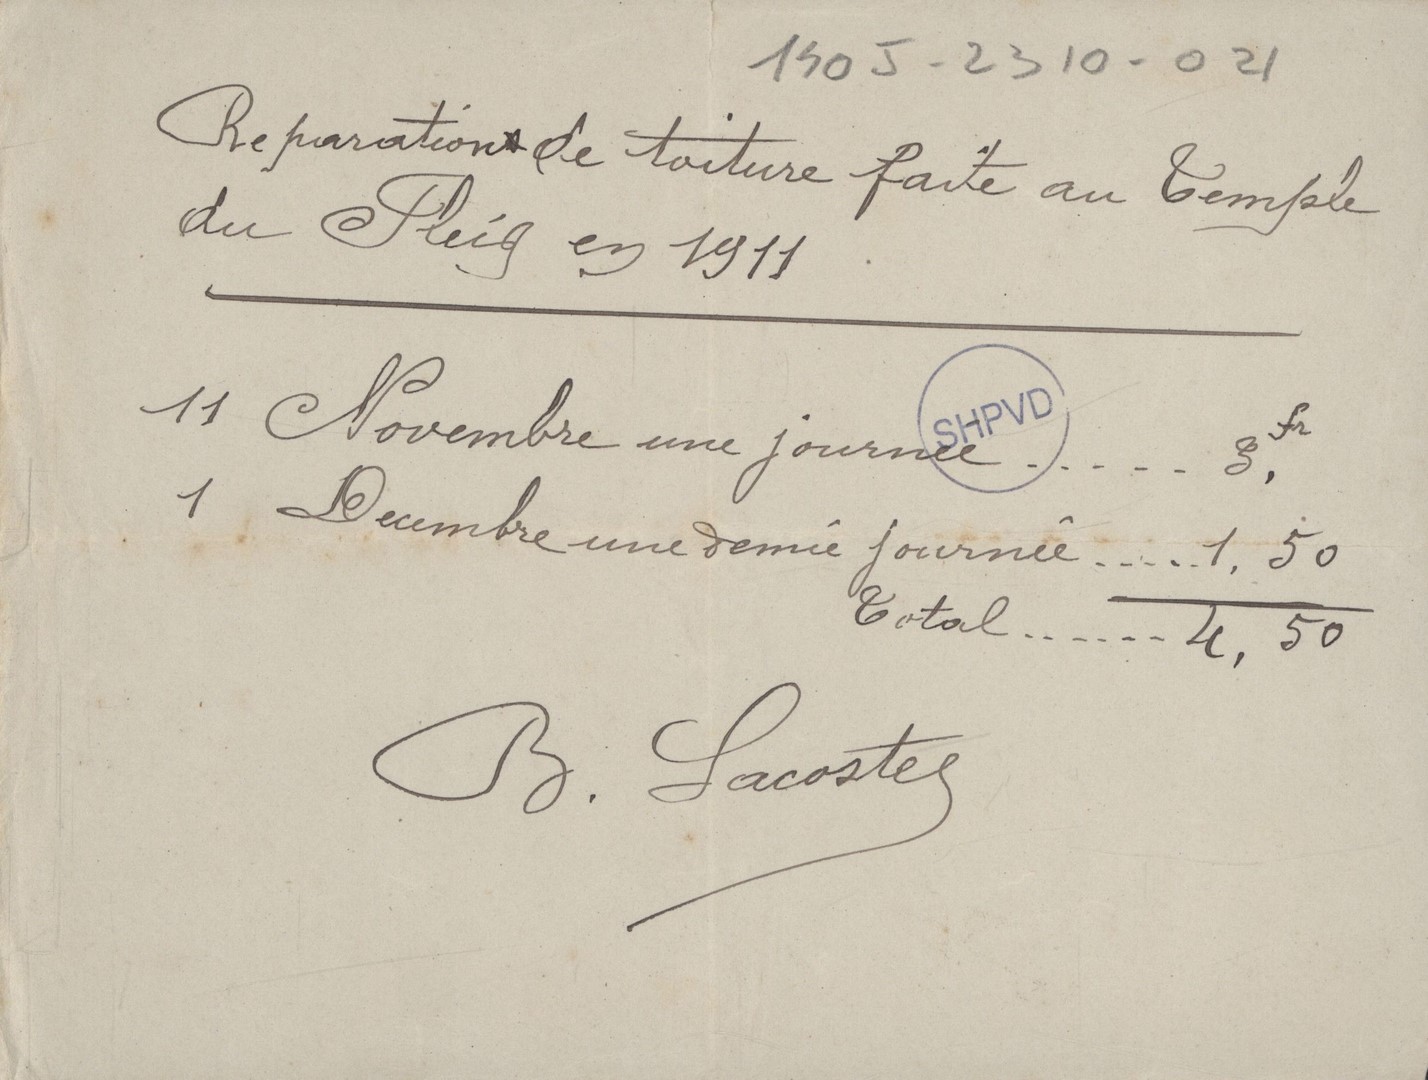 190J-2310-021
Reparation de toiture faite au Temple
du Fleig en 1911
11 Novembre une journée ..... 3,fr
SHPVD
1 Decembre une demie journée ..... 1,50
Total ...... 4,50
B. Lacoste